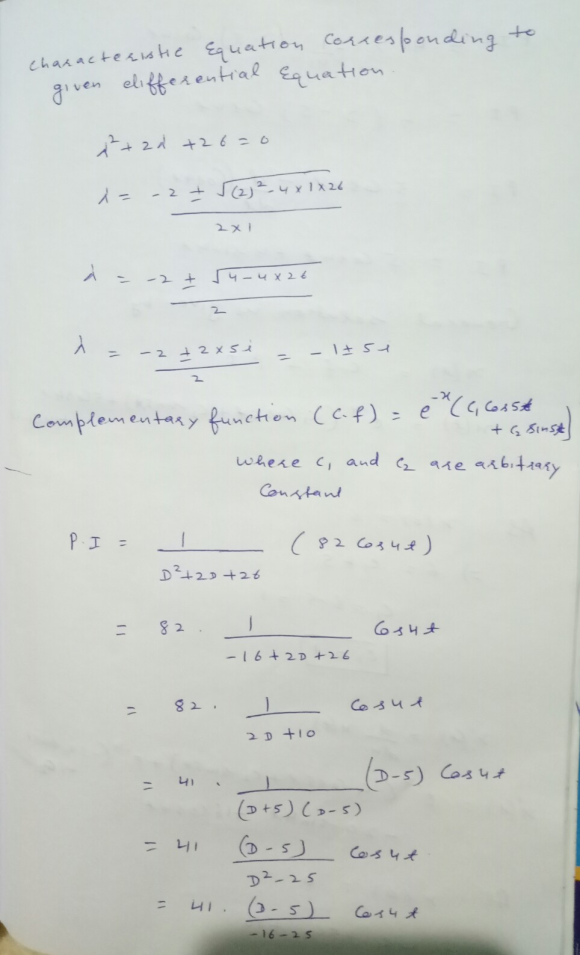 Characteristic Equation corresponding to
given differential Equation.
λ² + 2λ + 26 = 0
λ = -2 ± √((2)² - 4 x 1 x 26) / 2 x 1
λ = -2 ± √(4 - 4 x 26) / 2
λ = -2 ± 2 x 5i / 2 = -1 ± 5i
Complementary function (C.f) = e^-x (C₁ Cos5t
+ C₂ Sin5t)
where C₁ and C₂ are arbitrary
Constant
P.I = 1 / (D² + 2D + 26) (82 Cos4t)
= 82 . 1 / (-16 + 2D + 26) Cos4t
= 82 . 1 / (2D + 10) Cos4t
= 41 . 1 / ((D+5)(D-5)) (D-5) Cos4t
= 41 (D-5) / (D² - 25) Cos4t
= 41 . (D-5) / (-16-25) Cos4t